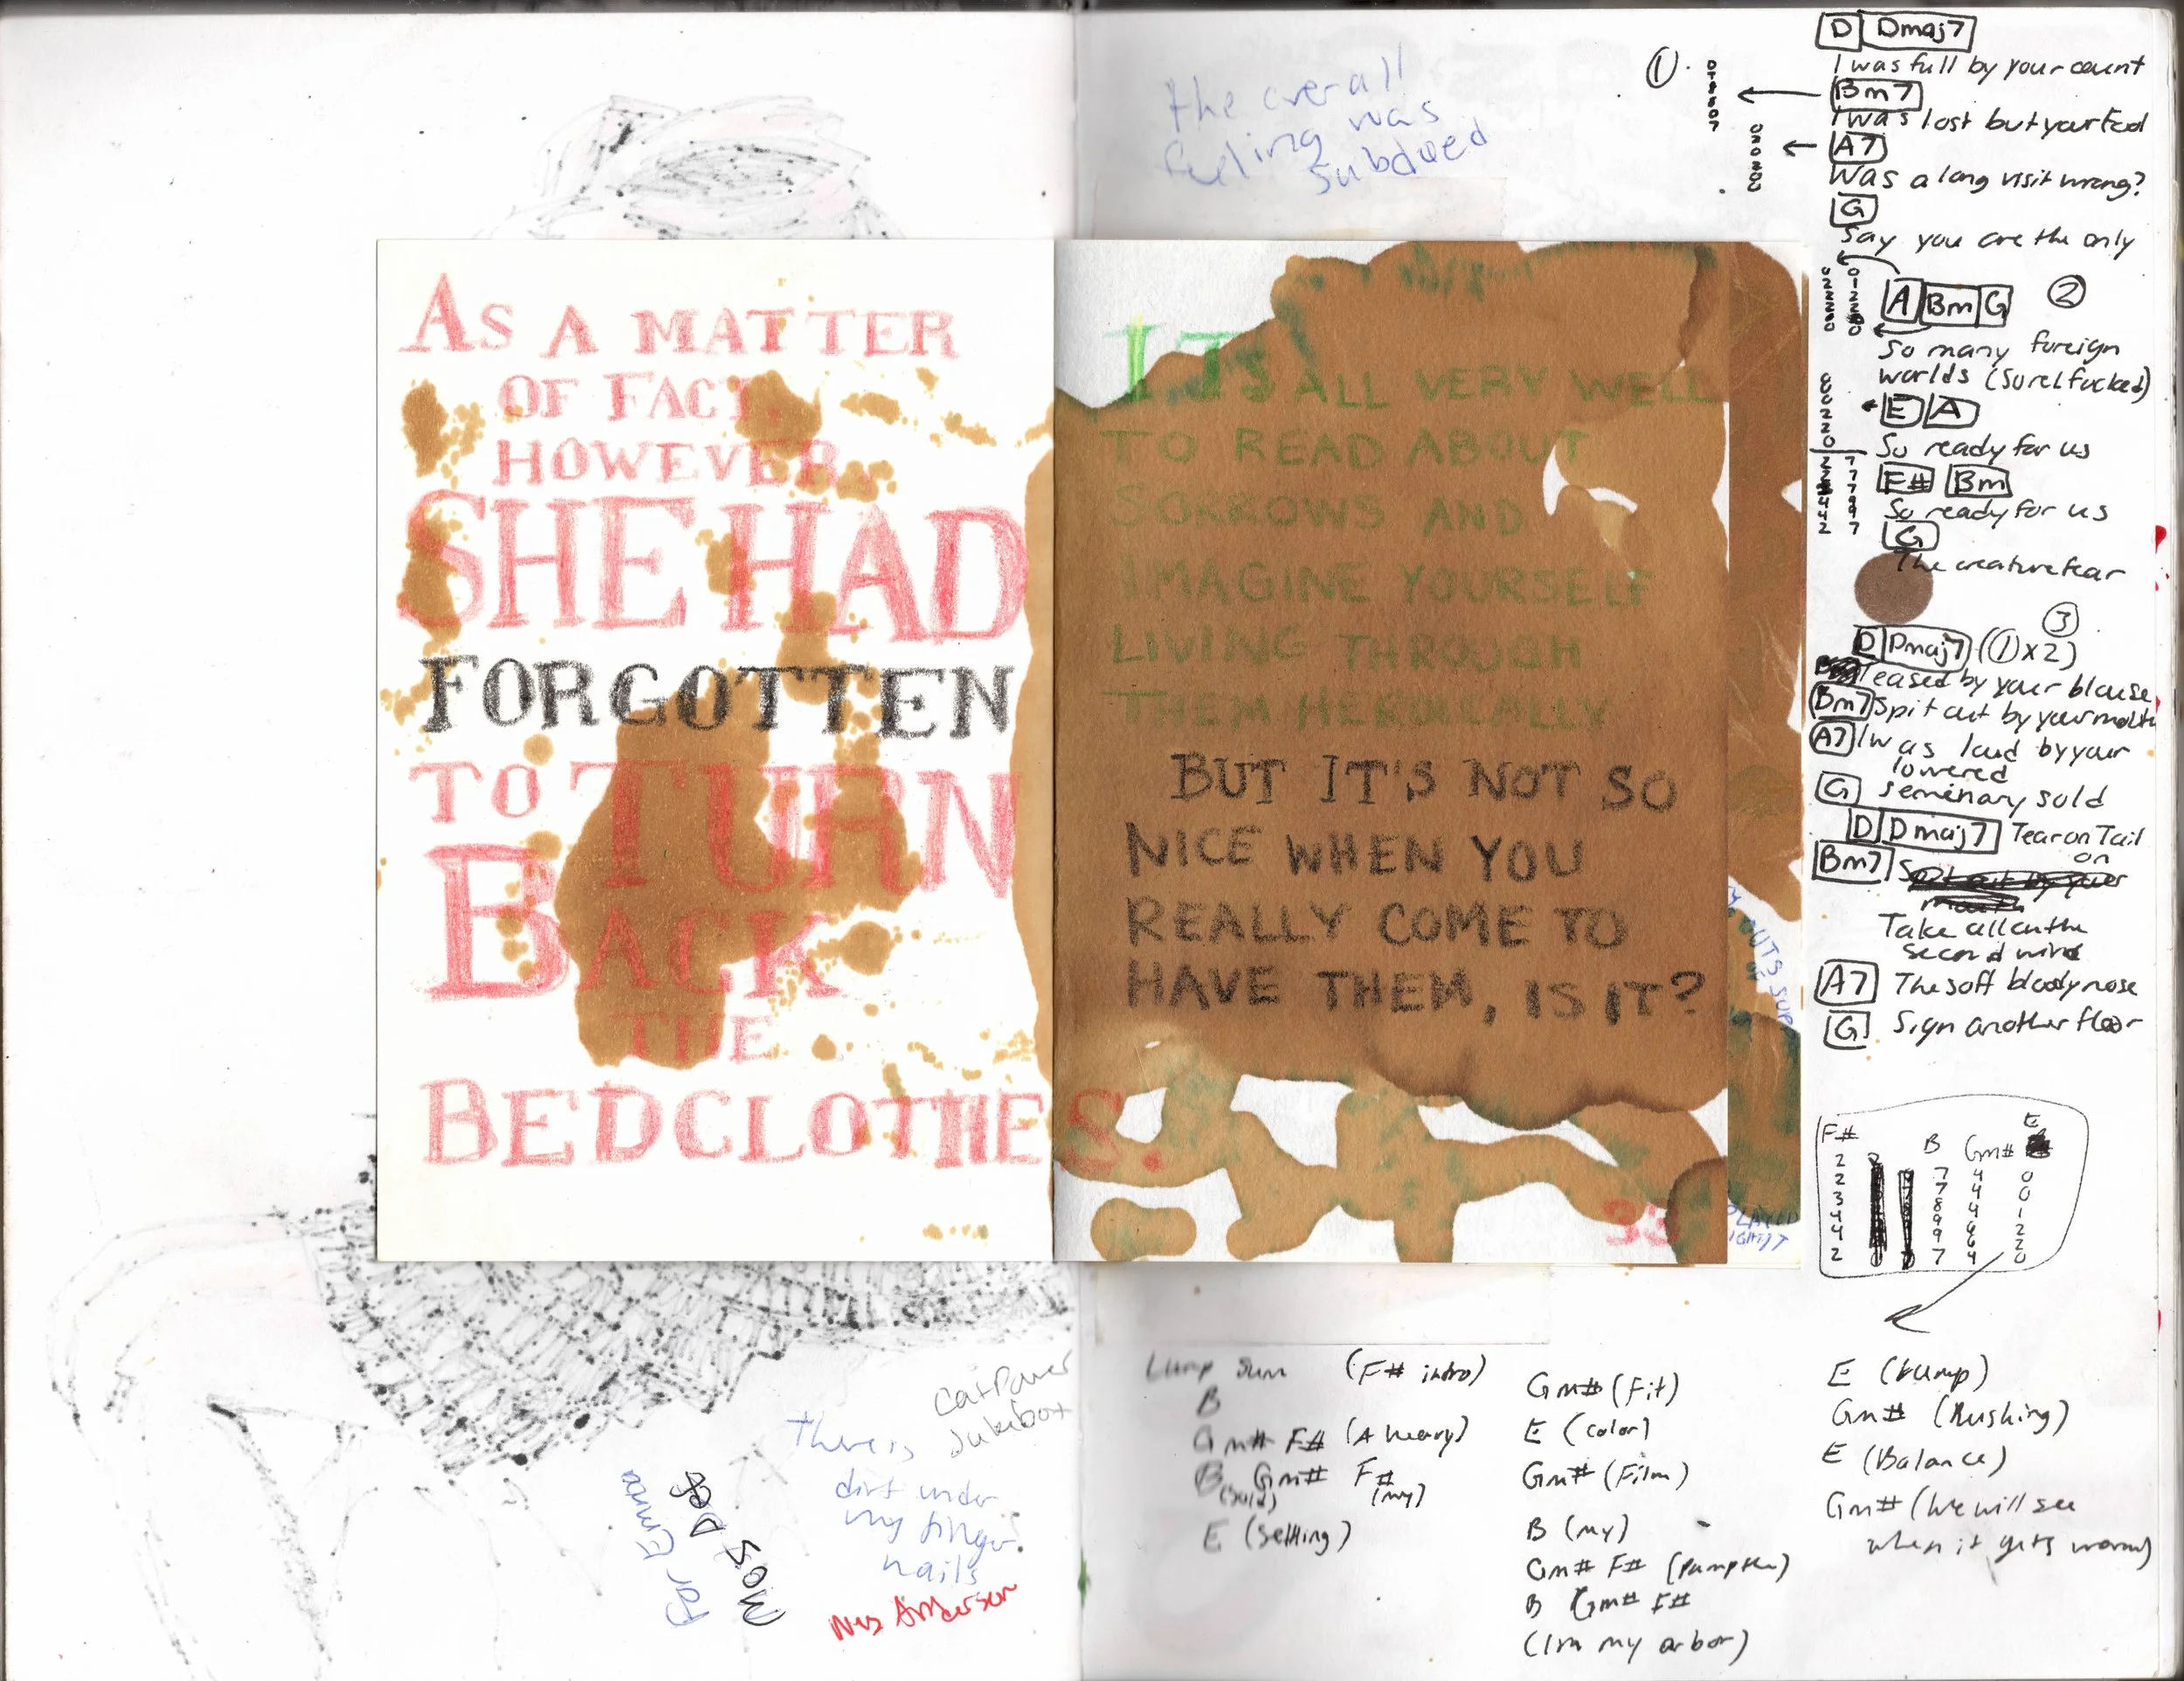 the overall
feeling was
subdued
AS A MATTER
OF FACT,
HOWEVER,
SHE HAD
FORGOTTEN
TO TURN
BACK
THE
BEDCLOTHES.
IT'S ALL VERY WELL
TO READ ABOUT
SORROWS AND
IMAGINE YOURSELF
LIVING THROUGH
THEM HEROICALLY
BUT IT'S NOT SO
NICE WHEN YOU
REALLY COME TO
HAVE THEM, IS IT?
33
OUTS
SUP
D Dmaj7
I was full by your count
① Bm7
I was lost but your
A7
Was a long visit wrong?
G
Say you are the only
A Bm G ②
So many foreign
worlds (So rel fucked)
E A
So ready for us
F# Bm
So ready for us
G
The creature fear
③
D Dmaj7 (① x 2)
Teased by your blouse
Bm7 Spit out by your mouth
A7 I was loud by your
lowered
G seminary sold
D Dmaj7 Tear on Tail
on
Bm7
Take all on the
second wind
A7 The soft bloody nose
G Sign another floor
F# B Gm# E
2 7 4 0
2 7 4 0
3 8 4 1
4 9 6 2
4 9 6 2
2 7 4 0
Lump Sum (F# intro)
B
Gm# F# (A heavy)
B Gm# F#
(sold) (my)
E (settling)
Gm# (Fit)
E (color)
Gm# (Film)
B (my)
Gm# F# (pump the)
B Gm# F#
(Im my arbor)
E (Lump)
Gm# (Rushing)
E (Balance)
Gm# (We will see
when it gets warm)
Cat Power
Jukebox
There is
dirt under
my finger
nails
Mos Def
For Emma
Wes Anderson